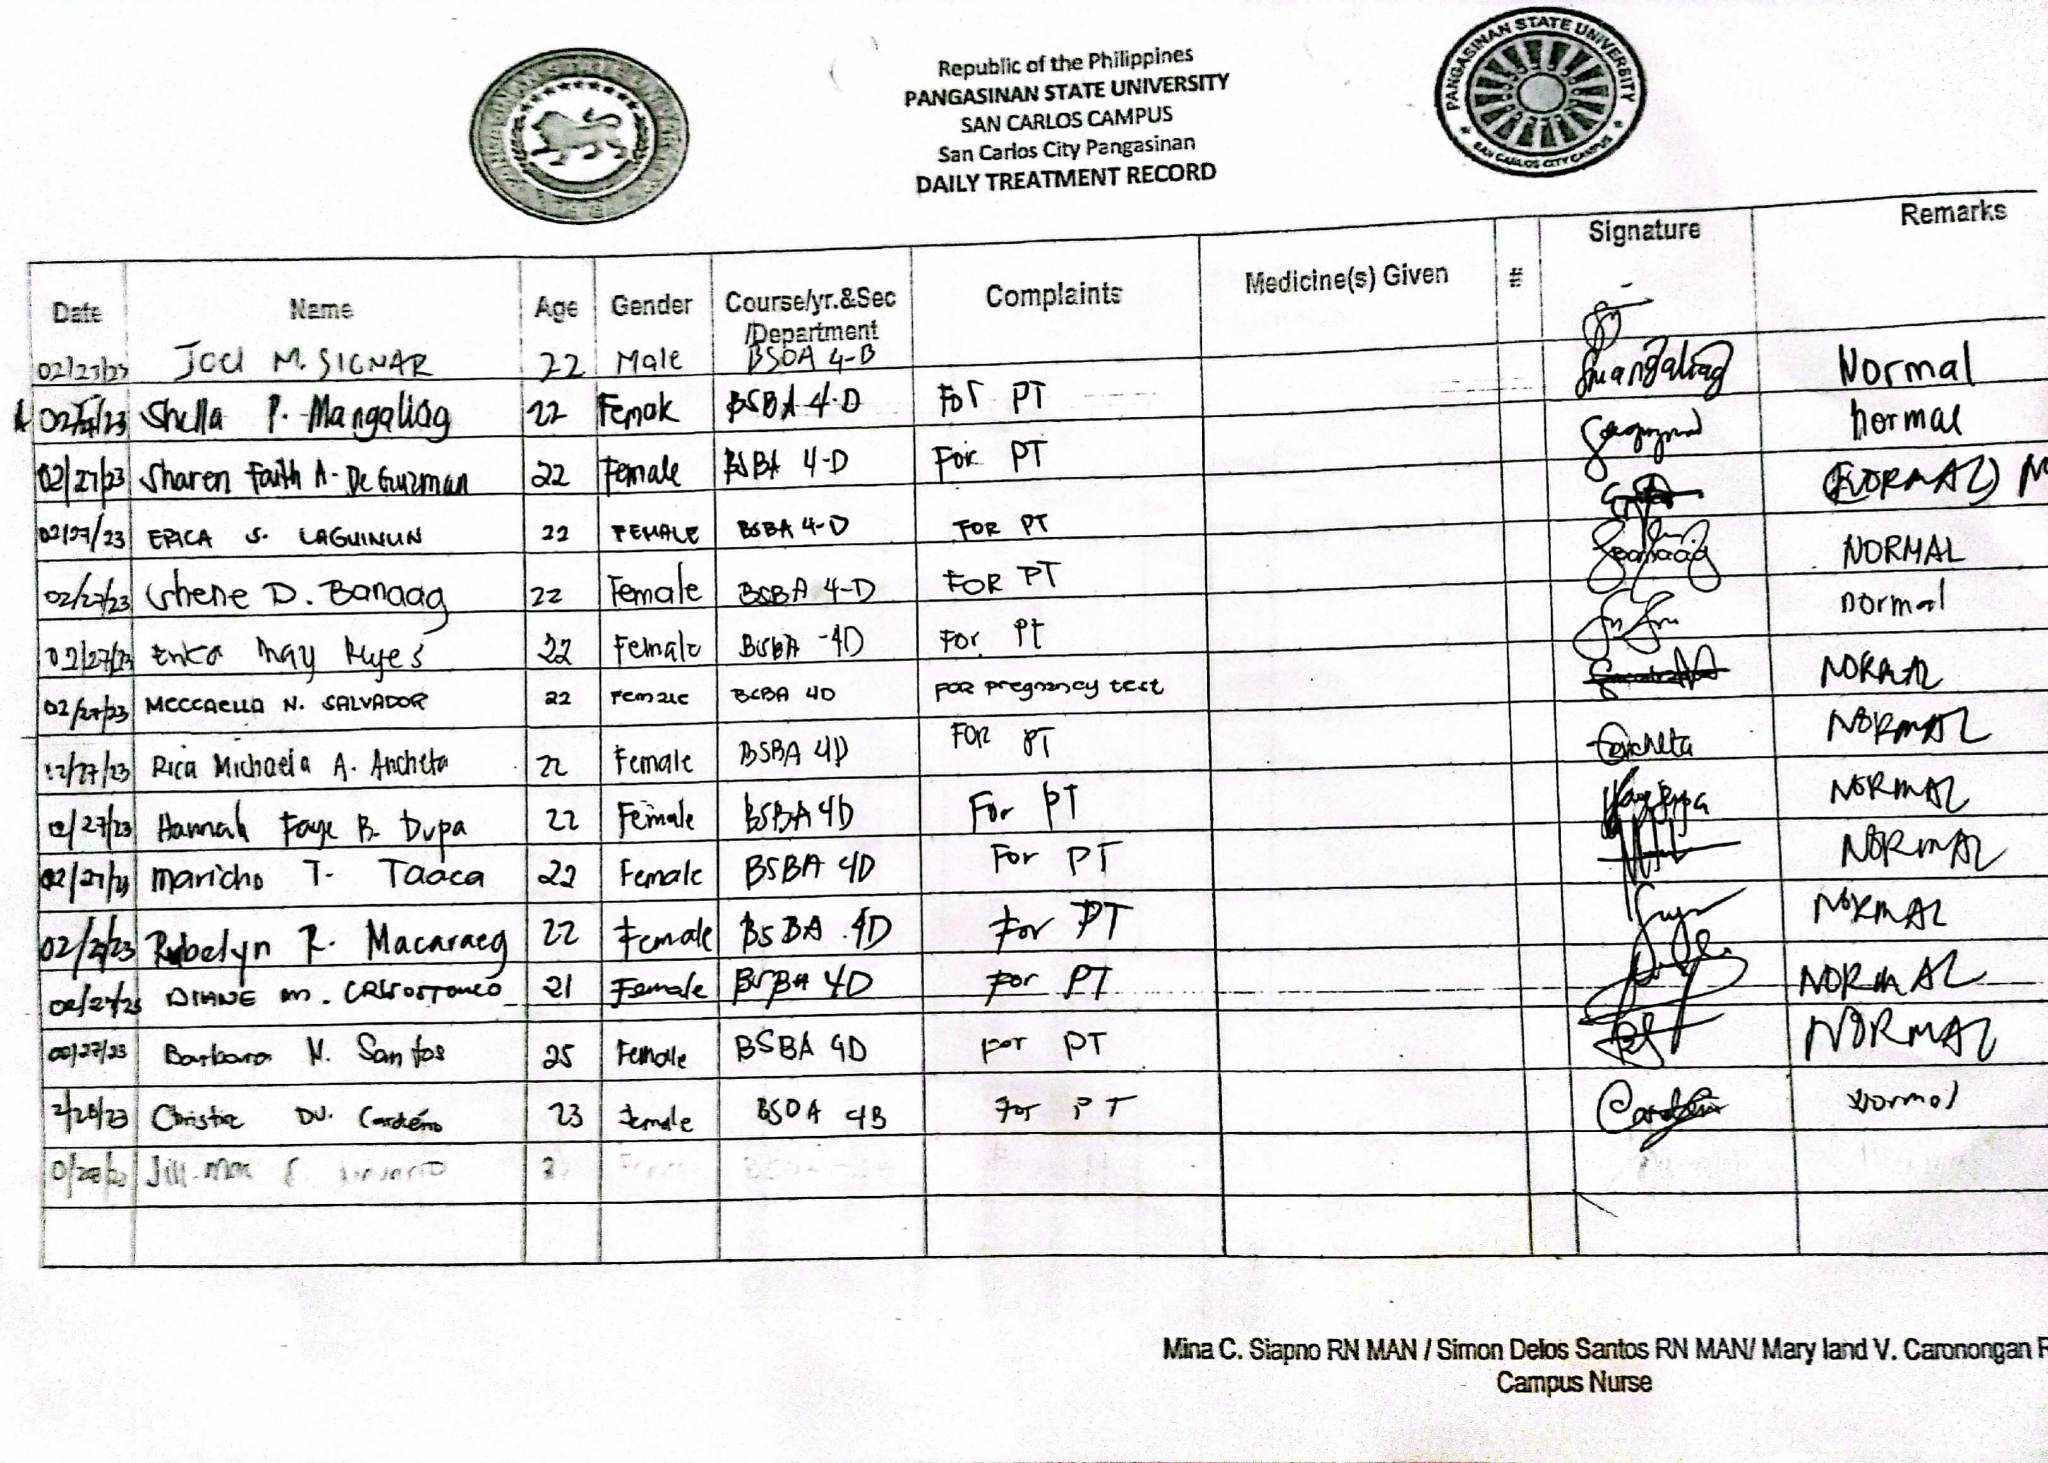 Republic of the Philippines
PANGASINAN STATE UNIVERSITY
SAN CARLOS CAMPUS
San Carlos City Pangasinan
DAILY TREATMENT RECORD
PANGASINAN STATE UNIVERSITY
SAN CARLOS CITY CAMPUS
Date Name Age Gender Course/yr.&Sec /Department Complaints Medicine(s) Given # Signature Remarks
M. SIGNAR 22 Male BSOA 4-B
Shella P. Mangaliag 22 Female BSBA 4-D For PT Normal
02/27/23 Sharen Faith A. De Guzman 22 Female BSBA 4-D For PT normal
02/27/23 ERICA S. LAGUINLIN 22 FEMALE BSBA 4-D FOR PT (NORMAL)
02/27/23 D. Banaag 22 Female BSBA 4-D FOR PT NORMAL
02/27/23 Erika May Reyes 22 Female BSBA -4D For PT normal
02/27/23 MECCAELLA N. SALVADOR 22 Female BSBA 4D FOR pregnancy test NORMAL
02/27/23 Rica Michaela A. Ancheta 22 Female BSBA 4D FOR PT Ancheta NORMAL
02/27/23 Hannah Faye B. Dupa 22 Female BSBA 4D For PT NORMAL
02/27/23 Maricho T. Taaca 22 Female BSBA 4D For PT NORMAL
02/27/23 Rubelyn R. Macaraeg 22 Female BSBA 4D For PT NORMAL
02/27/23 DIANE M. CRISOSTOMO 21 Female BSBA 4D For PT NORMAL
02/27/23 Barbara N. Santos 25 Female BSBA 4D For PT NORMAL
2/28/23 DV. Cardeño 23 Female BSOA 4B For PT Normal
Jill
Mina C. Siapno RN MAN / Simon Delos Santos RN MAN/ Mary land V. Caronongan
Campus Nurse